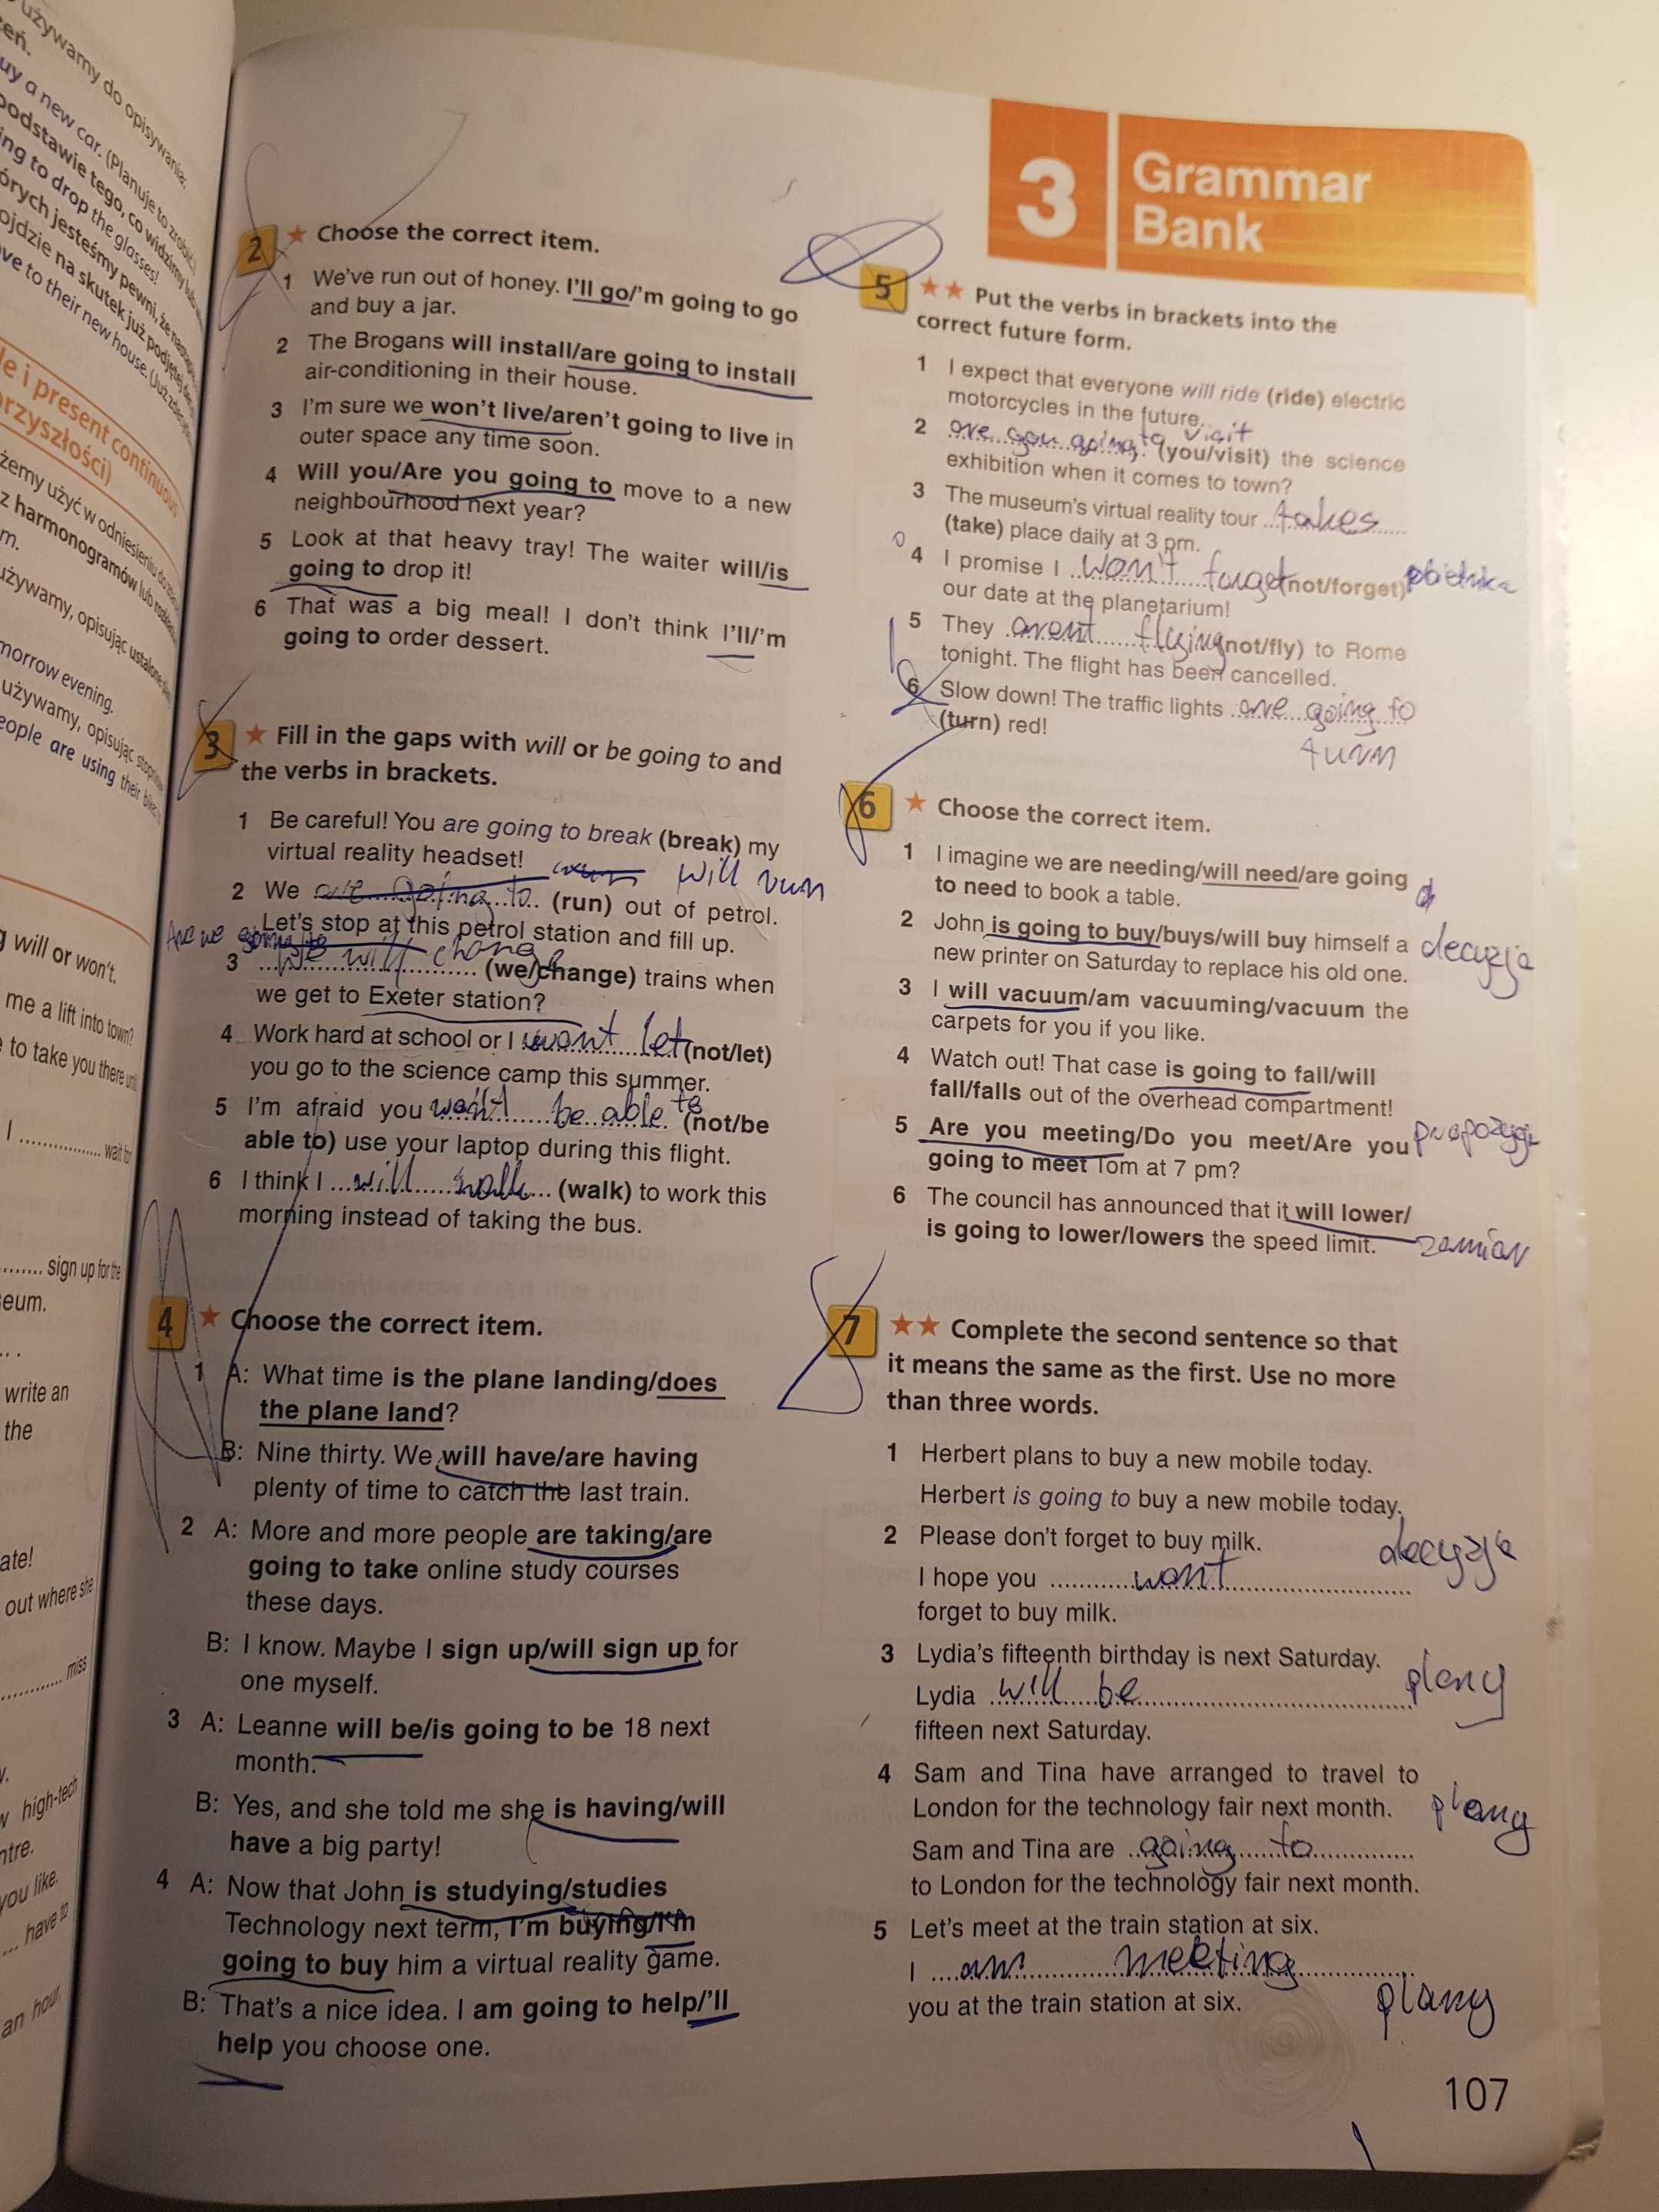 używamy do opisywania:
zeń.
uy a new car. (Planuje to zrobić.)
podstawie tego, co widzimy lub
ing to drop the glasses!
órych jesteśmy pewni, że
ojdzie na skutek już podjętej
ve to their new house. (Już
le i present continuous
rzyszłości)
żemy użyć w odniesieniu do
z harmonogramów lub
m.
używamy, opisując ustalone
morrow evening.
używamy, opisując
eople are using their
g will or won't.
me a lift into town?
to take you there
I .............. wait for
........ sign up for the
eum.
write an
the
ate!
out where she
miss
y.
v high-tech
ntre.
you like.
... have to
an hour.
3 Grammar
Bank
2 ★ Choose the correct item.
1 We've run out of honey. I'll go/'m going to go
and buy a jar.
2 The Brogans will install/are going to install
air-conditioning in their house.
3 I'm sure we won't live/aren't going to live in
outer space any time soon.
4 Will you/Are you going to move to a new
neighbourhood next year?
5 Look at that heavy tray! The waiter will/is
going to drop it!
6 That was a big meal! I don't think I'll/'m
going to order dessert.
3 ★ Fill in the gaps with will or be going to and
the verbs in brackets.
1 Be careful! You are going to break (break) my
virtual reality headset!
will run
2 We are going to (run) out of petrol.
Let's stop at this petrol station and fill up.
Are we going to
3 we will change (we/change) trains when
we get to Exeter station?
4 Work hard at school or I wont let (not/let)
you go to the science camp this summer.
5 I'm afraid you won't be able to (not/be
able to) use your laptop during this flight.
6 I think I will walk (walk) to work this
morning instead of taking the bus.
4 ★ Choose the correct item.
1 A: What time is the plane landing/does
the plane land?
B: Nine thirty. We will have/are having
plenty of time to catch the last train.
2 A: More and more people are taking/are
going to take online study courses
these days.
B: I know. Maybe I sign up/will sign up for
one myself.
3 A: Leanne will be/is going to be 18 next
month.
B: Yes, and she told me she is having/will
have a big party!
4 A: Now that John is studying/studies
Technology next term, I'm buying/I'm
going to buy him a virtual reality game.
B: That's a nice idea. I am going to help/'ll
help you choose one.
5 ★★ Put the verbs in brackets into the
correct future form.
1 I expect that everyone will ride (ride) electric
motorcycles in the future.
2 are you going to visit (you/visit) the science
exhibition when it comes to town?
3 The museum's virtual reality tour takes
(take) place daily at 3 pm.
4 I promise I won't forget (not/forget)
our date at the planetarium!
5 They arent flying (not/fly) to Rome
tonight. The flight has been cancelled.
6 Slow down! The traffic lights are going to
(turn) red!
turn
6 ★ Choose the correct item.
1 I imagine we are needing/will need/are going
to need to book a table.
2 John is going to buy/buys/will buy himself a decyzja
new printer on Saturday to replace his old one.
3 I will vacuum/am vacuuming/vacuum the
carpets for you if you like.
4 Watch out! That case is going to fall/will
fall/falls out of the overhead compartment!
5 Are you meeting/Do you meet/Are you
going to meet Tom at 7 pm?
6 The council has announced that it will lower/
is going to lower/lowers the speed limit. zamiar
7 ★★ Complete the second sentence so that
it means the same as the first. Use no more
than three words.
1 Herbert plans to buy a new mobile today.
Herbert is going to buy a new mobile today.
2 Please don't forget to buy milk. decyzja
I hope you won't
forget to buy milk.
3 Lydia's fifteenth birthday is next Saturday.
Lydia will be plany
fifteen next Saturday.
4 Sam and Tina have arranged to travel to
London for the technology fair next month. plany
Sam and Tina are going to
to London for the technology fair next month.
5 Let's meet at the train station at six.
I am meeting
you at the train station at six. plany
107